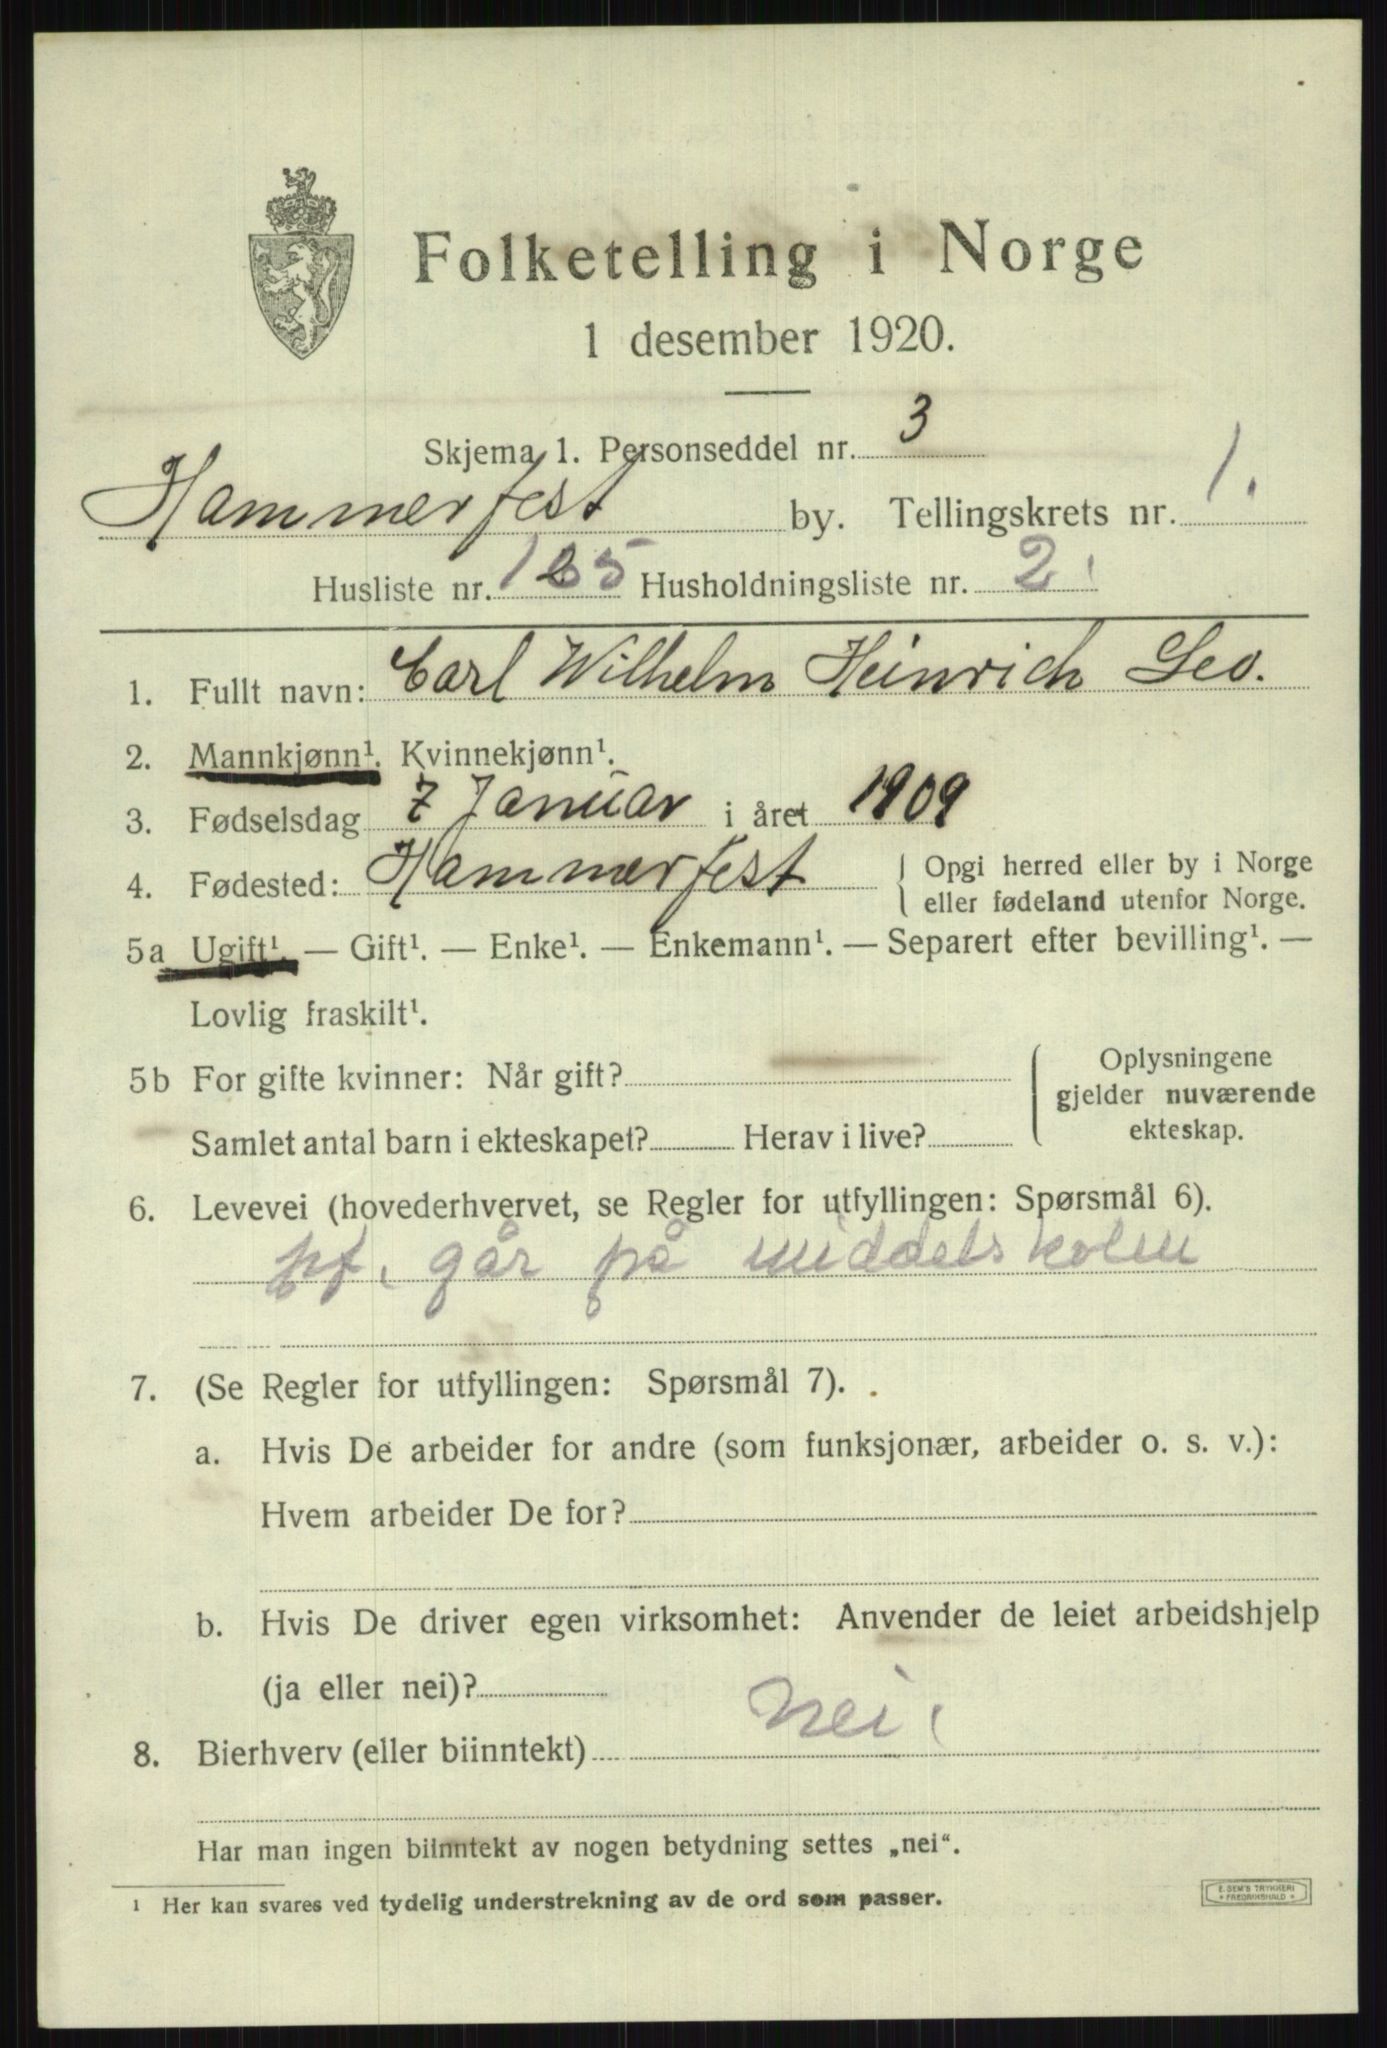 Folketelling i Norge
1 desember 1920.
Skjema 1. Personseddel nr. 3
Hammerfest by. Tellingskrets nr. 1.
Husliste nr. 125 Husholdningsliste nr. 2.
1. Fullt navn: Carl Wilhelm Heinrich Leo.
2. Mannkjønn¹. Kvinnekjønn¹.
3. Fødselsdag 7 Januar i året 1909
4. Fødested: Hammerfest Opgi herred eller by i Norge
eller fødeland utenfor Norge.
5a Ugift¹. — Gift¹. — Enke¹. — Enkemann¹. — Separert efter bevilling¹. —
Lovlig fraskilt¹.
5b For gifte kvinner: Når gift?
Samlet antal barn i ekteskapet? Herav i live?
Oplysningene
gjelder nuværende
ekteskap.
6. Levevei (hovederhvervet, se Regler for utfyllingen: Spørsmål 6).
pf. går på middelskolen
7. (Se Regler for utfyllingen: Spørsmål 7).
a. Hvis De arbeider for andre (som funksjonær, arbeider o. s. v.):
Hvem arbeider De for?
b. Hvis De driver egen virksomhet: Anvender de leiet arbeidshjelp
(ja eller nei)?
8. Bierhverv (eller biinntekt) nei.
Har man ingen biinntekt av nogen betydning settes „nei“.
¹ Her kan svares ved tydelig understrekning av de ord som passer.
E. SEM'S TRYKKERI
* FREDRIKSHALD *